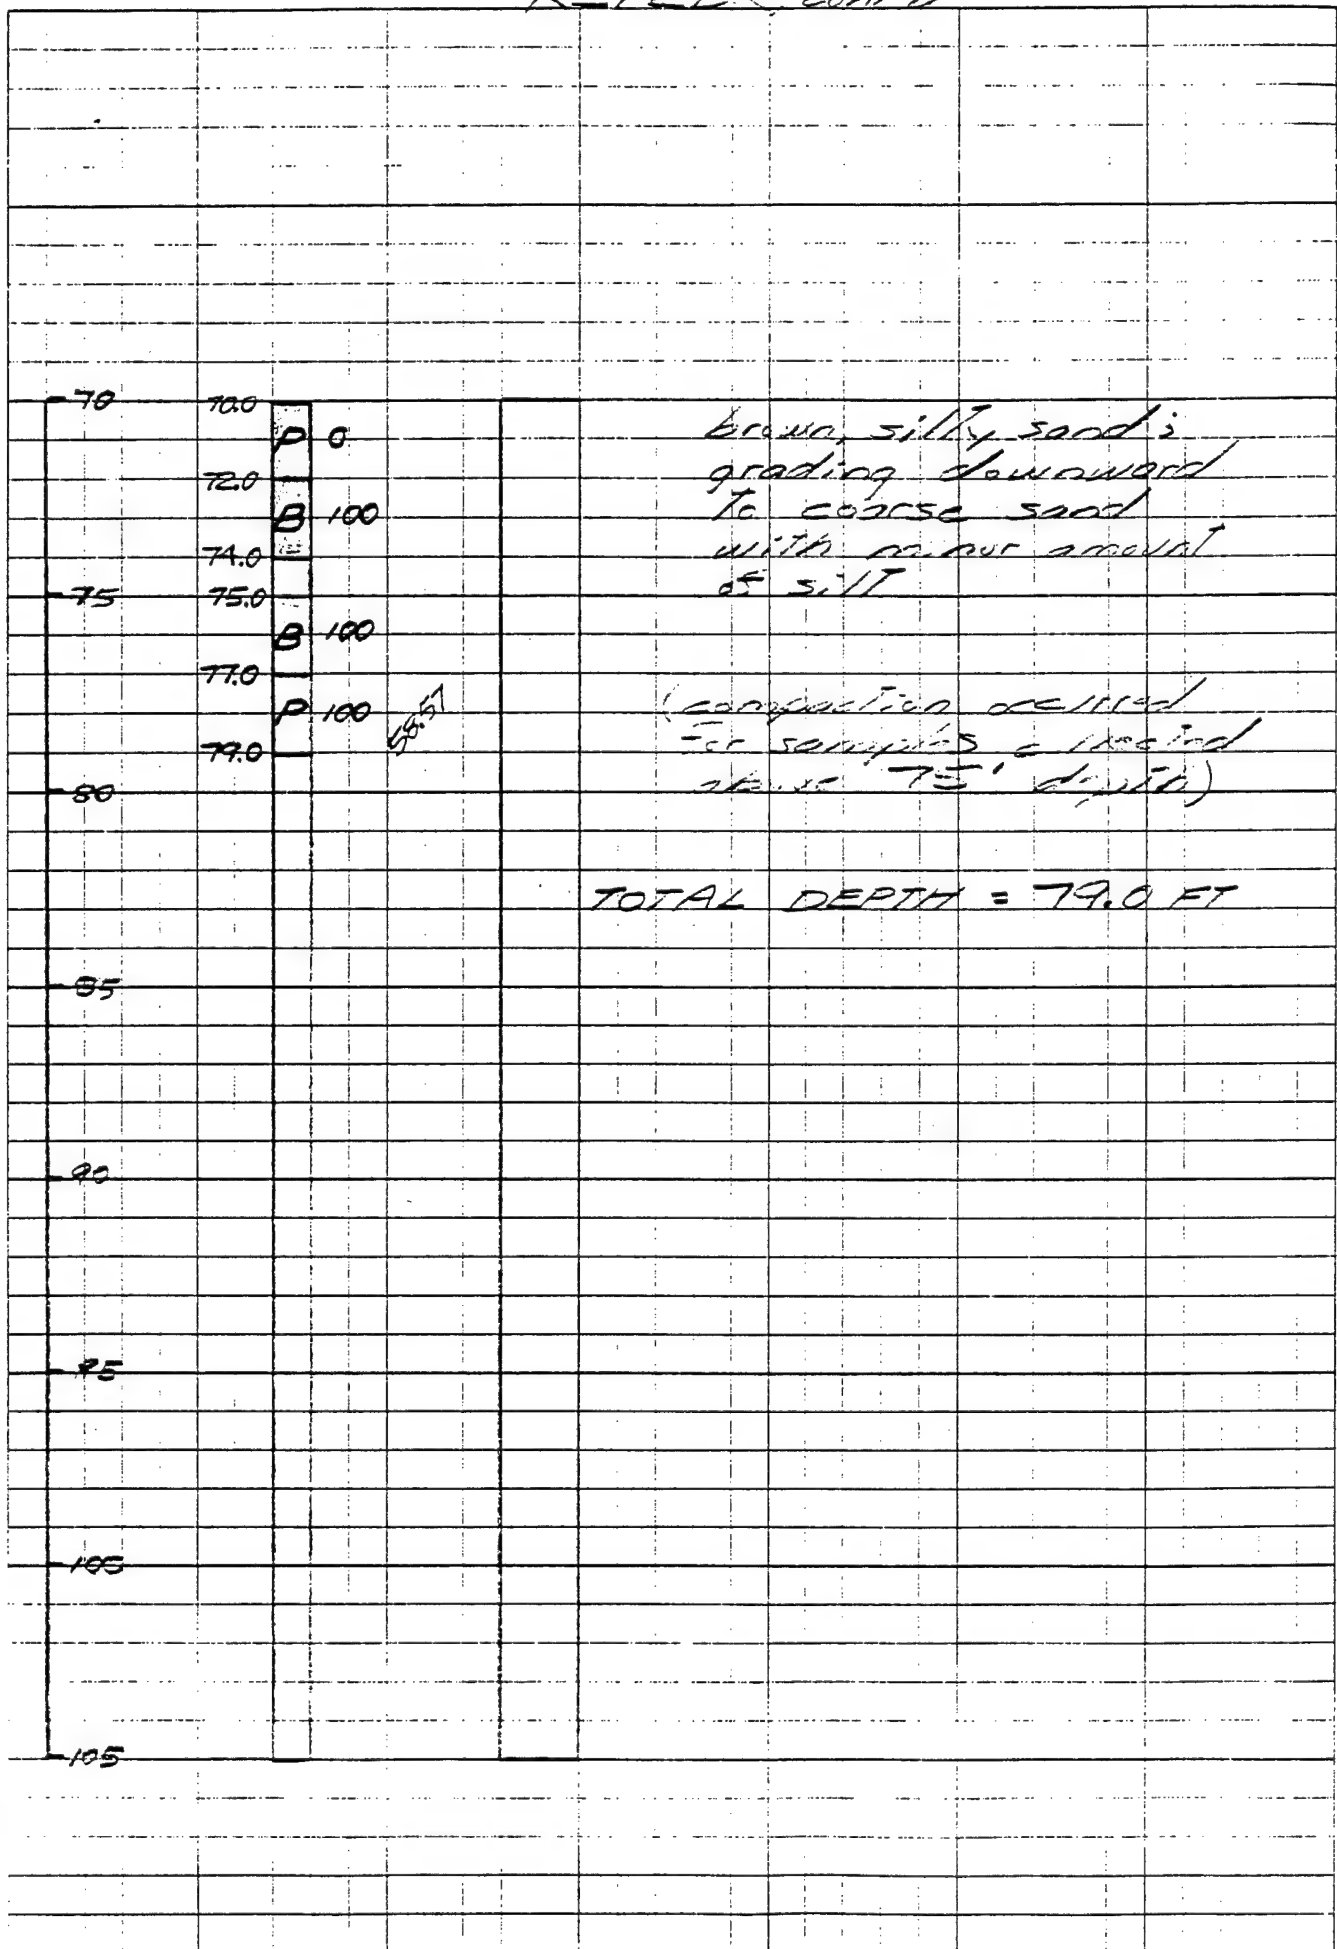 70
70.0
P 0
72.0
B 100
74.0
75
75.0
B 100
77.0
P 100
58.57
79.0
80
85
90
95
100
105
brown, silty sand;
grading downward
to coarse sand
with minor amount
of silt
(compaction occurred
for samples collected
above 75' depth)
TOTAL DEPTH = 79.0 FT